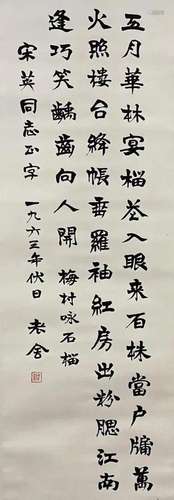 五月華林宴榴花入眼来百株當户牖萬
火照楼台絳帳垂羅袖紅房出粉腮江南
逢巧笑齲齒向人開 梅村咏石榴
宋英同志正字 一九六三年伏日 老舍